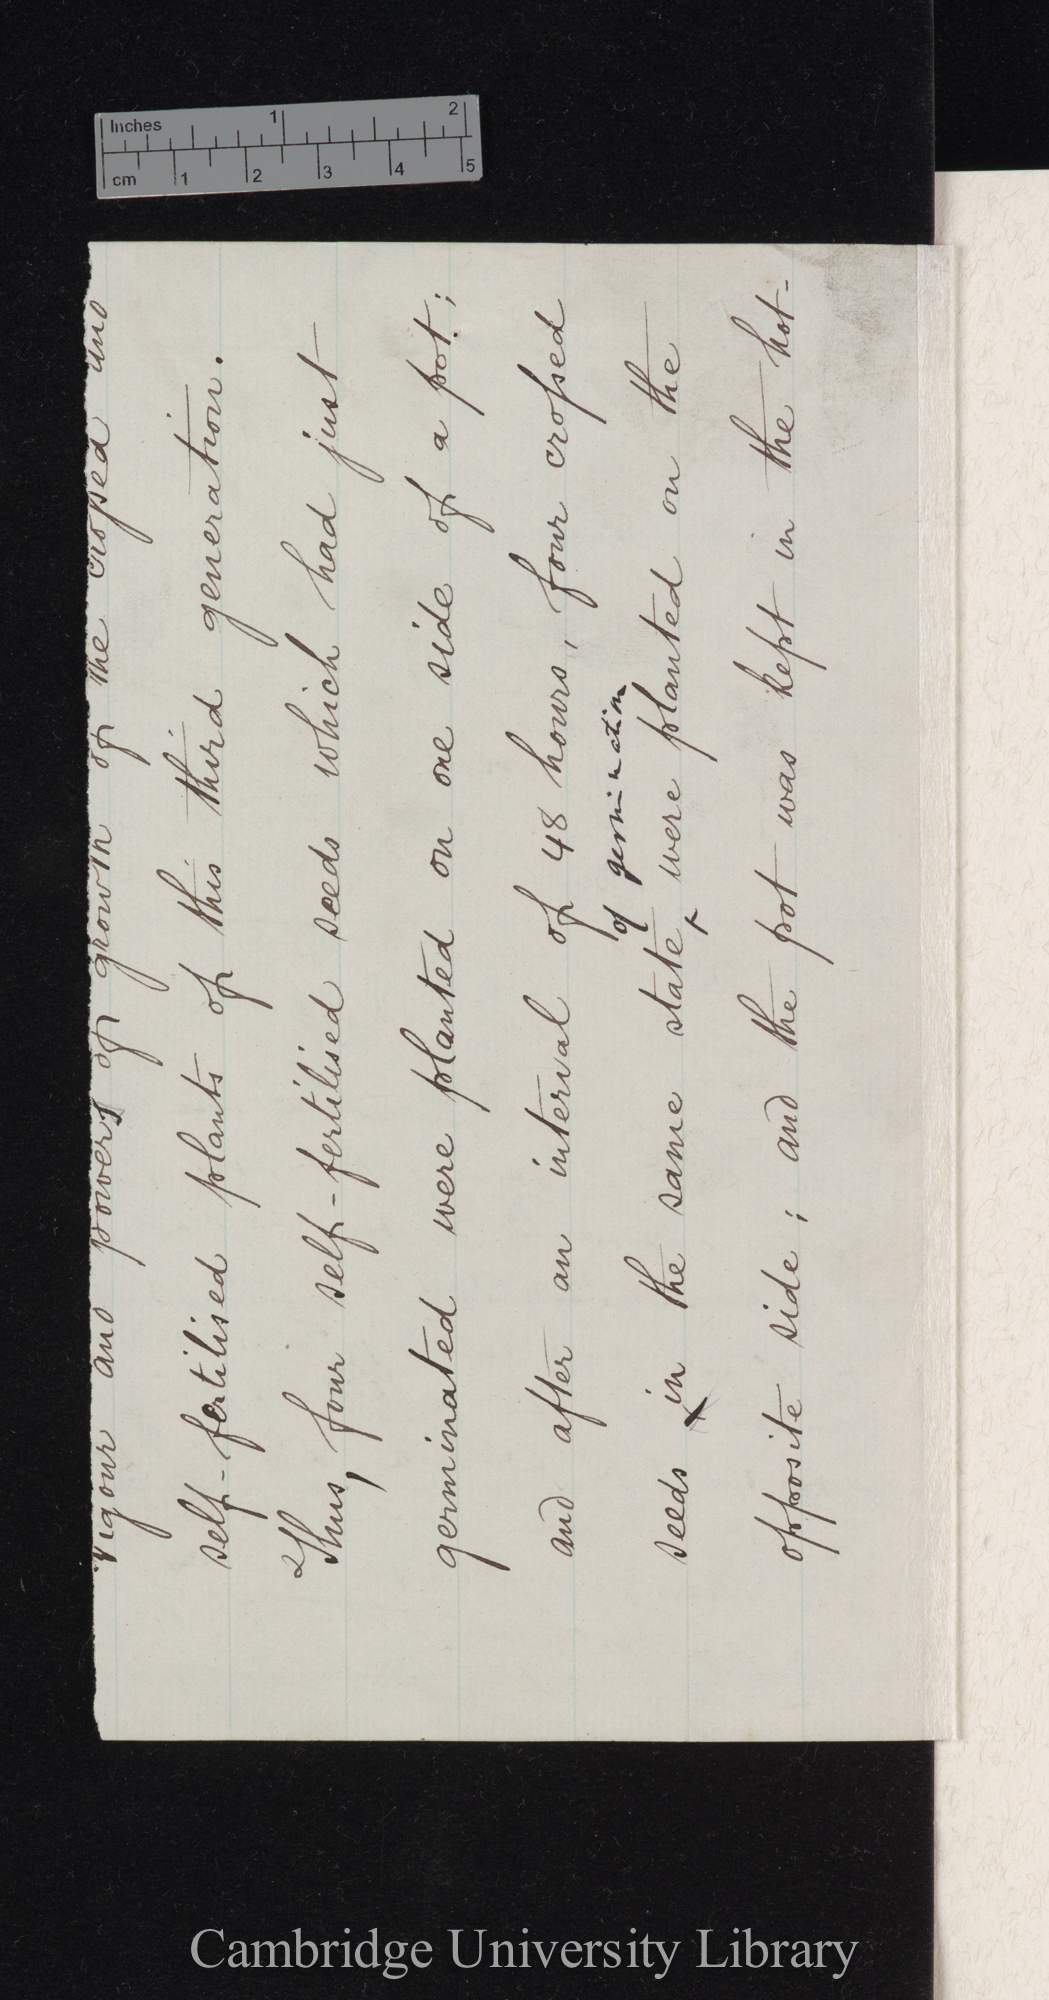 Inches 1 2
cm 1 2 3 4 5
vigour and powers of growth of the crossed and
self-fertilised plants of this third generation.
Thus, four self-fertilised seeds which had just
germinated were planted on one side of a pot;
and after an interval of 48 hours, four crossed
of germination
seeds in the same state were planted on the
opposite side; and the pot was kept in the hot-
Cambridge University Library